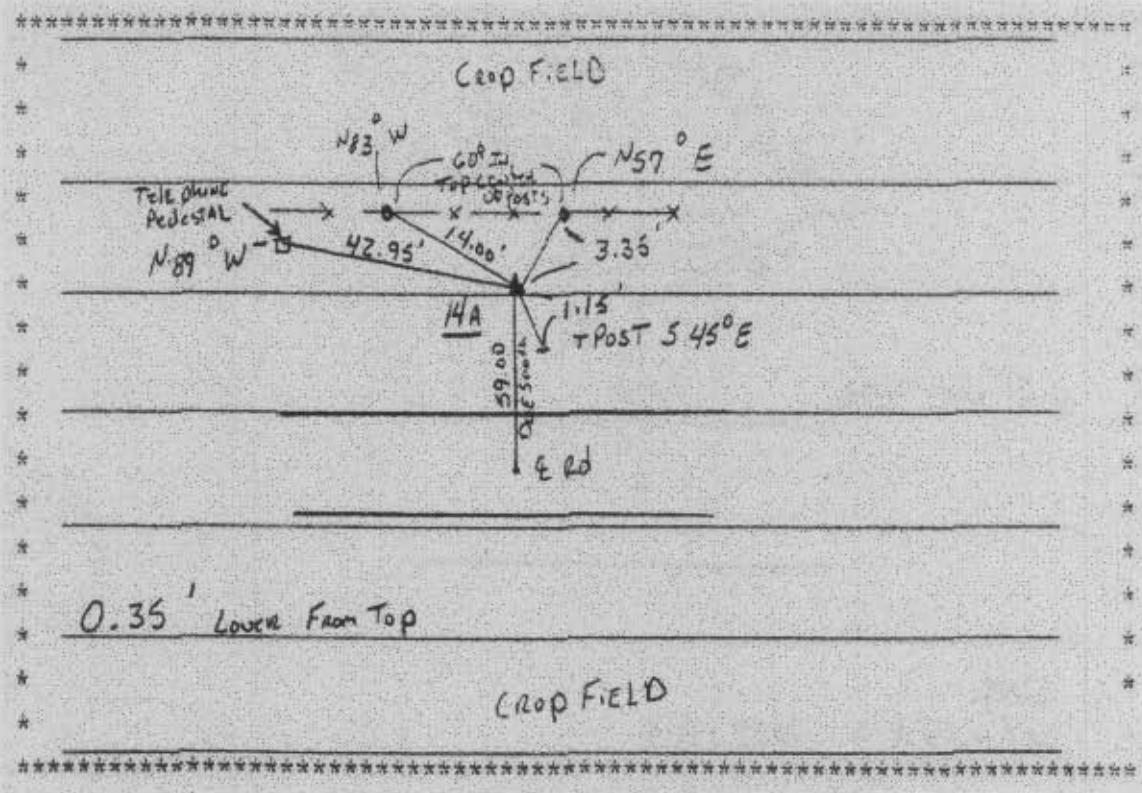 CROP FIELD
N83° W
60d IN
TOP CENTER
OF POSTS
N57° E
TELEPHONE
PEDESTAL
N 89° W
42.95'
14.00'
3.35'
14A
1.15'
T POST S 45° E
59.00
DUE South
℄ Rd
0.35' LOWER FROM TOP
CROP FIELD